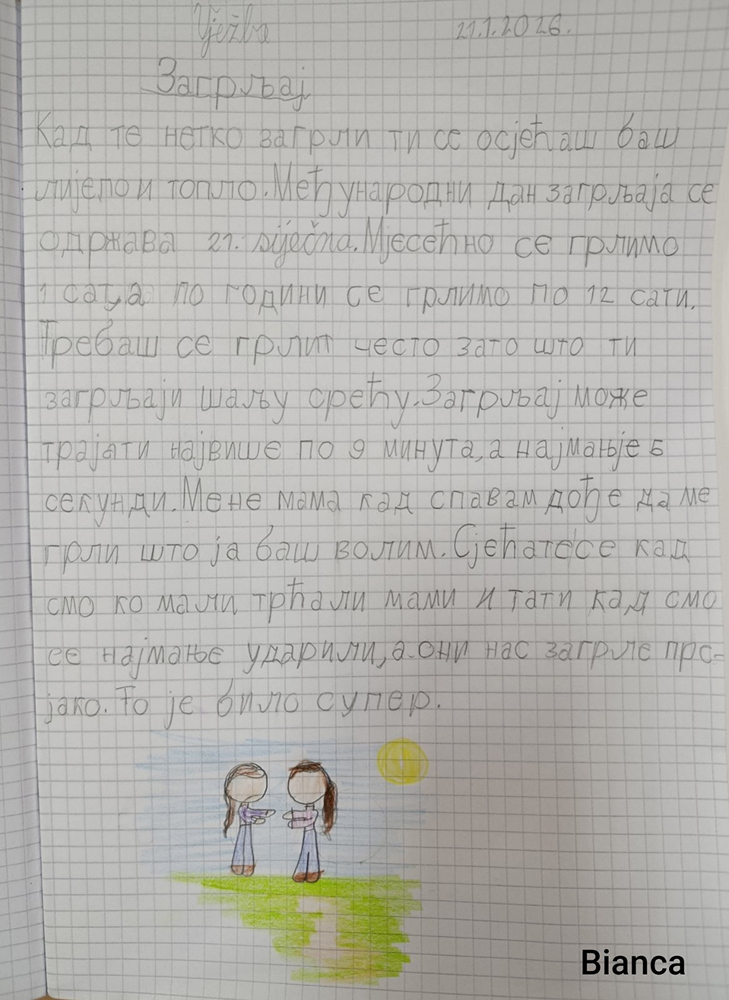 Vježba 21.1.2026.
Загрљај
Кад те нетко загрли ти се осјећаш баш
лијепо и топло. Међународни дан загрљаја се
одржава 21. siječna. Мјесећно се грлимо
1 сат, а по години се грлимо по 12 сати.
Требаш се грлит често зато што ти
загрљаји шаљу срећу. Загрљај може
трајати највише по 9 минута, а најмањје 5
секунди. Мене мама кад спавам дође да ме
грли што ја баш волим. Сјећате се кад
смо ко мали трћали мами и тати кад смо
се најмање ударили, а они нас загрле прс-
јако. То је било супер.
Bianca